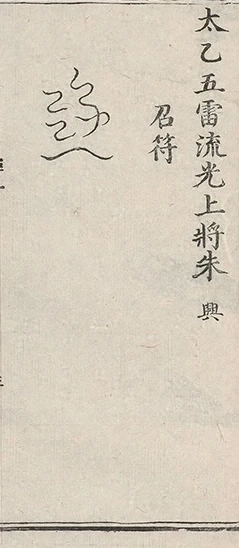 太乙五雷流光上將朱興
召符